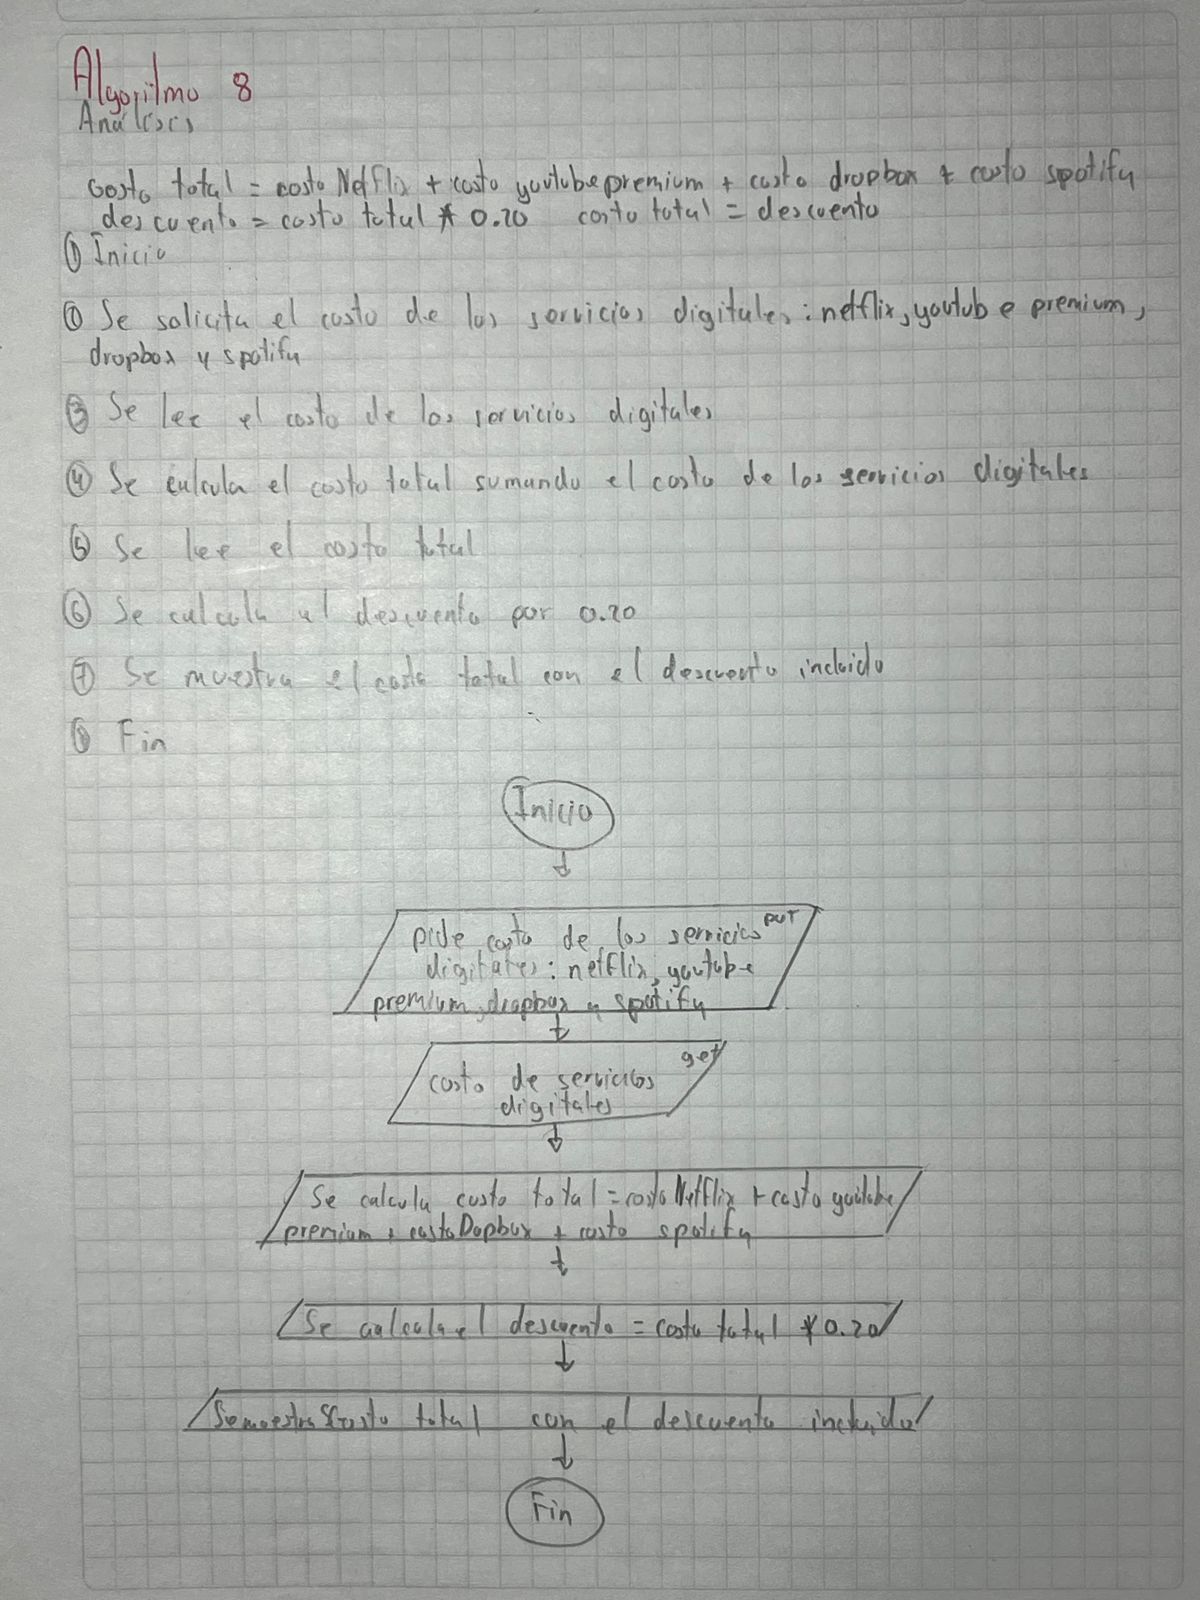 Algoritmo 8
Análisis
Costo total = costo Netflix + costo youtube premium + costo dropbox + costo spotify
descuento = costo total * 0.20 costo total = descuento
① Inicio
② Se solicita el costo de los servicios digitales: netflix, youtube premium,
dropbox y spotify
③ Se lee el costo de los servicios digitales
④ Se calcula el costo total sumando el costo de los servicios digitales
⑤ Se lee el costo total
⑥ Se calcula el descuento por 0.20
⑦ Se muestra el costo total con el descuento incluido
⑧ Fin
Inicio
pide costo de los servicios PUT
digitales: netflix, youtube
premium, dropbox y spotify
get
costo de servicios
digitales
Se calcula costo total = costo Netflix + costo youtube
premium + costo Dopbox + costo spotify
Se calcula el descuento = costo total * 0.20
Se muestra costo total con el descuento incluido
Fin